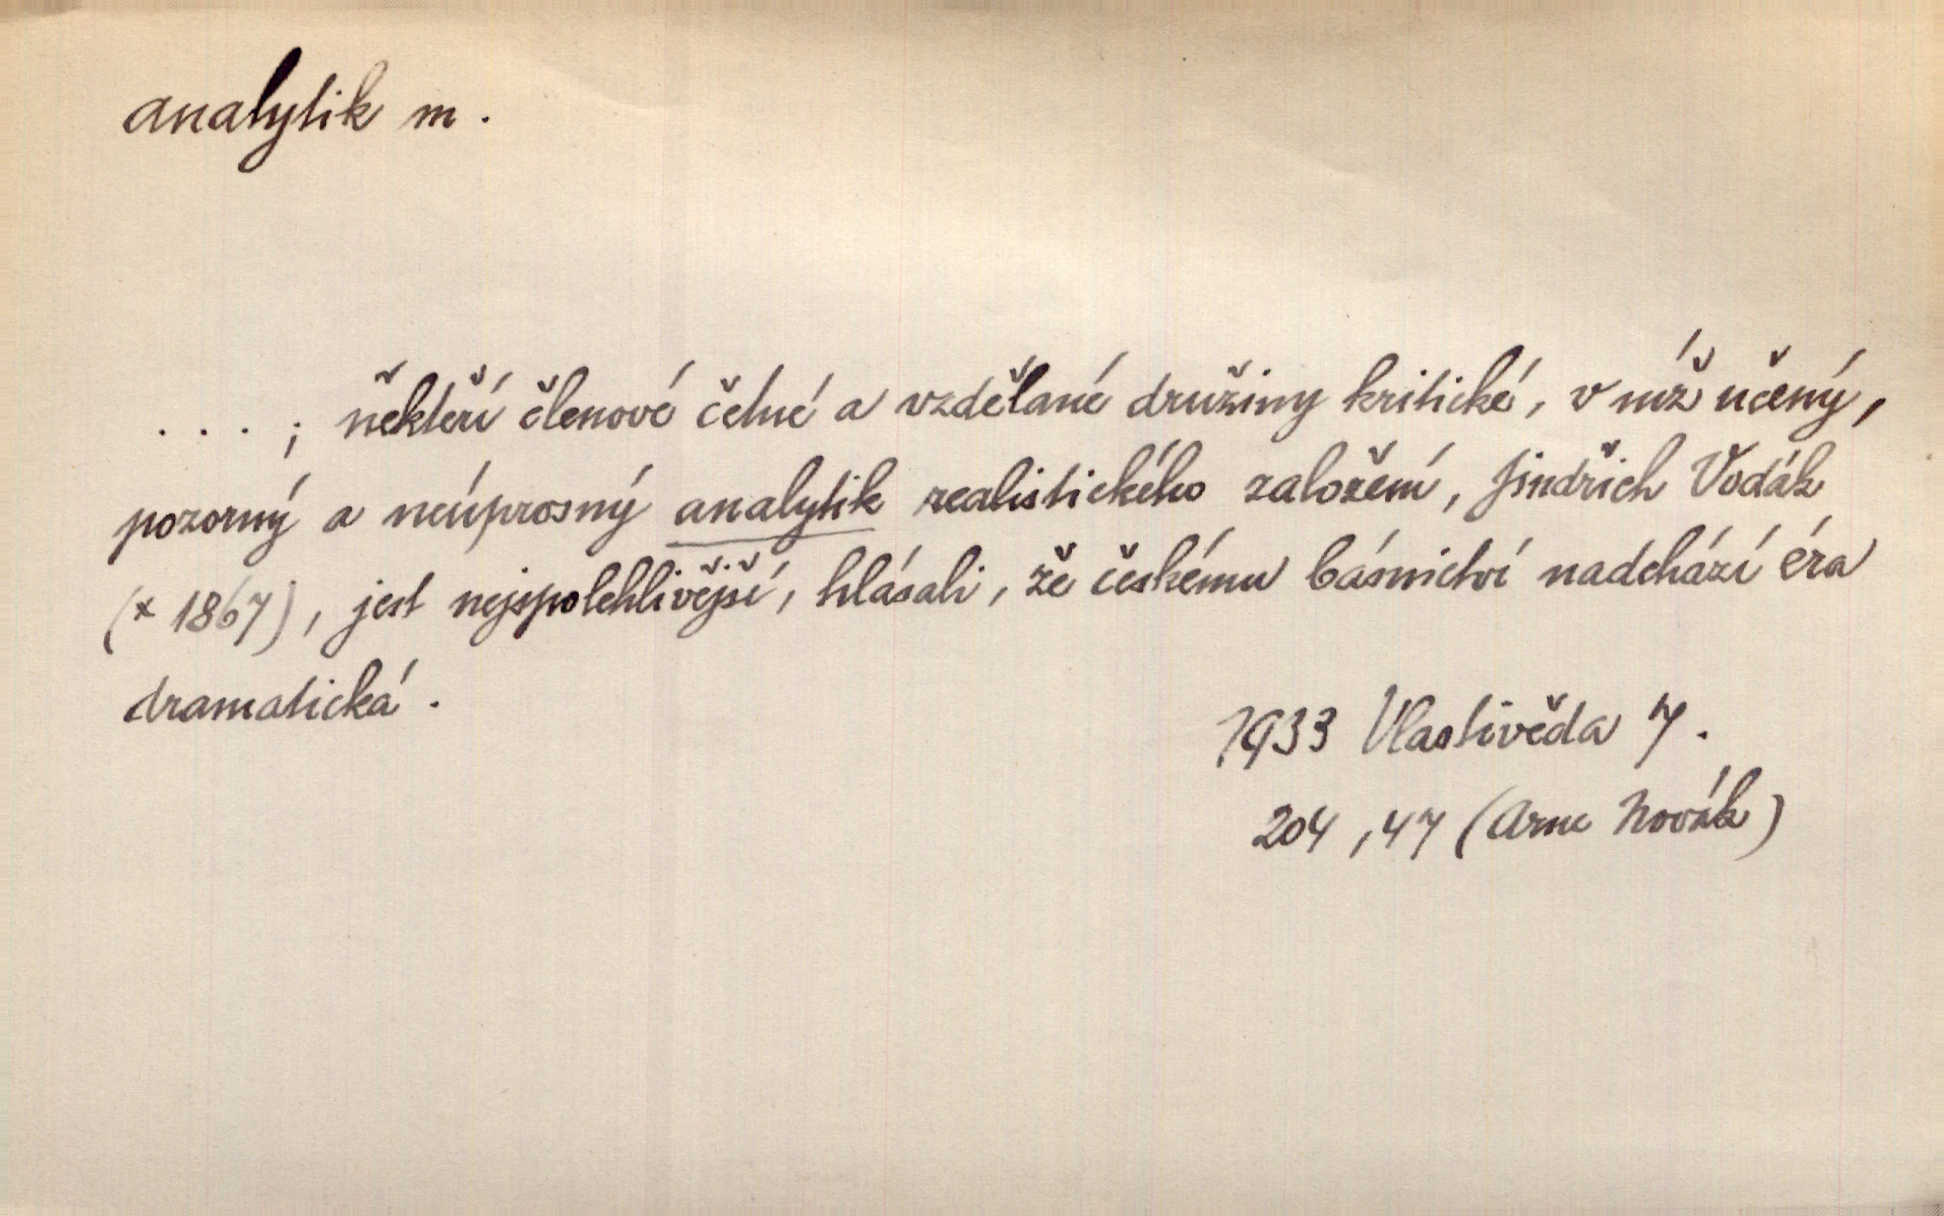 analytik m.
. . . ; někteří členové četné a vzdělané družiny kritické, v níž učený,
pozorný a neúprosný analytik realistického založení, Jindřich Vodák
(* 1867), jest nejspolehlivější, hlásali, že českému básnictví nadchází éra
dramatická.
1933 Vlastivěda 7.
204, 47 (Arne Novák)